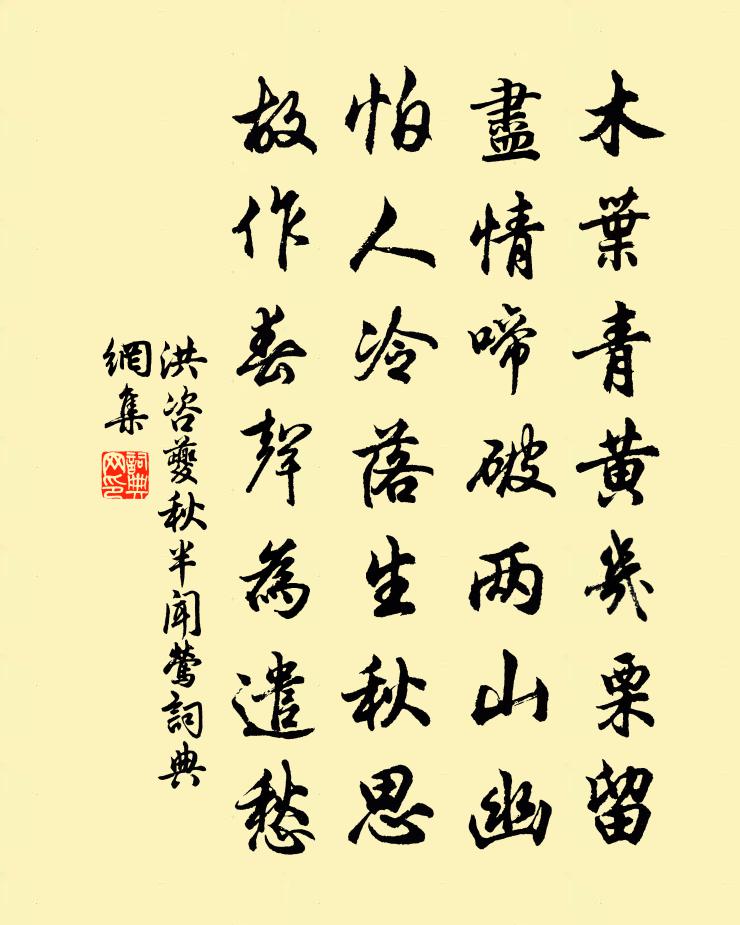 木葉青黄幾栗留
盡情啼破两山幽
怕人冷落生秋思
故作春聲為遣愁
洪咨夔秋半聞鶯詞典
網集
詞典網印